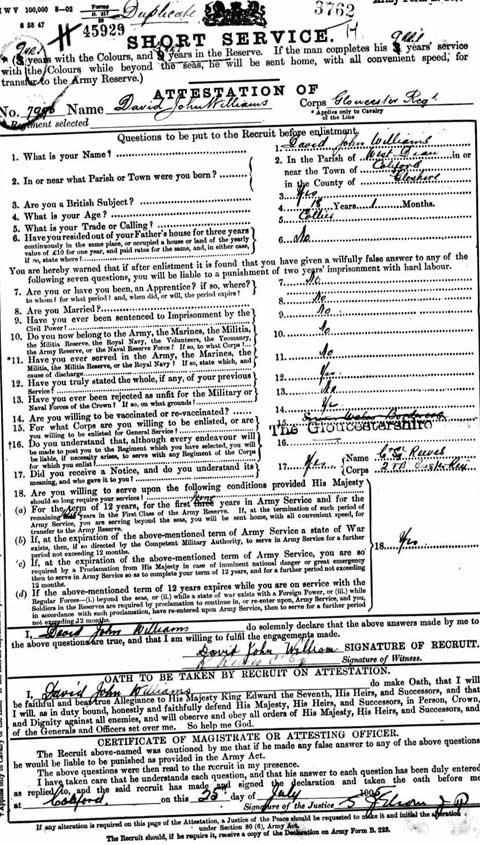 W V 100,000 8—02
Forms
B. 217
Duplicate
3762
Army Form
6 58 47
H 45929
H
SHORT SERVICE.
years with the Colours, and years in the Reserve. If the man completes his years' service
with the Colours while beyond the seas, he will be sent home, with all convenient speed, for
transfer to the Army Reserve.)
ATTESTATION OF
No. Name David John Williams Corps Gloucester Regt
Regiment selected
* Applies only to Cavalry
of the Line
Questions to be put to the Recruit before enlistment.
1. What is your Name?
1. David John Williams
2. In or near what Parish or Town were you born?
2. In the Parish of West Dean in or
near the Town of Coleford
in the County of
3. Are you a British Subject?
3. Yes
4. What is your Age?
4. 18 Years 1 Months.
5. What is your Trade or Calling?
5. Collier
6. Have you resided out of your Father's house for three years
continuously in the same place, or occupied a house or land of the yearly
value of £10 for one year, and paid rates for the same, and, in either case,
if so, state where?
6. No
You are hereby warned that if after enlistment it is found that you have given a wilfully false answer to any of the
following seven questions, you will be liable to a punishment of two years' imprisonment with hard labour.
7. Are you or have you been, an Apprentice? if so, where?
to whom? for what period? and, when did, or will, the period expire?
7. No
8. Are you Married?
8. No
9. Have you ever been sentenced to Imprisonment by the
Civil Power?
9. No
10. Do you now belong to the Army, the Marines, the Militia,
the Militia Reserve, the Royal Navy, the Volunteers, the Yeomanry,
the Army Reserve, or the Naval Reserve Force? If so, to what Corps?
10.
*11. Have you ever served in the Army, the Marines, the
Militia, the Militia Reserve, or the Royal Navy? If so, state which, and
cause of discharge
11. No
12. Have you truly stated the whole, if any, of your previous
Service?
12. Yes
13. Have you ever been rejected as unfit for the Military or
Naval Forces of the Crown? If so, on what grounds?
13. No
14. Are you willing to be vaccinated or re-vaccinated?
14. Yes
15. For what Corps are you willing to be enlisted, or are
you willing to be enlisted for General Service?
The Gloucestershire
†16. Do you understand that, although every endeavour will
be made to post you to the Regiment which you have selected, you will
be liable, if necessity arises, to serve with any Regiment of the Corps
for which you enlist?
16.
17. Did you receive a Notice, and do you understand its
meaning, and who gave it to you?
17. Yes
Name Reeves
Corps
18. Are you willing to serve upon the following conditions provided His Majesty
should so long require your services?
(a) For the term of 12 years, for the first years in Army Service and for the
remaining years in the First Class of the Army Reserve. If, at the termination of such period of
Army Service, you are serving beyond the seas, you will be sent home, with all convenient speed, for
transfer to the Army Reserve.
(b) If, at the expiration of the above-mentioned term of Army Service a state of War
exists, then, if so directed by the Competent Military Authority, to serve in Army Service for a further
period not exceeding 12 months.
(c) If, at the expiration of the above-mentioned term of Army Service, you are so
required by a Proclamation from His Majesty in case of imminent national danger or great emergency
then to serve in Army Service so as to complete your term of 12 years, and for a further period not exceeding
12 months.
(d) If the above-mentioned term of 12 years expires while you are on service with the
Regular Forces—(i.) beyond the seas, or (ii.) while a state of war exists with a Foreign Power, or (iii.) while
Soldiers in the Reserves are required by proclamation to continue in, or re-enter upon, Army Service, and you,
in accordance with such proclamation, have re-entered upon Army Service, then to serve for a further period
not exceeding 12 months.
18. Yes
I, David John Williams do solemnly declare that the above answers made by me to
the above questions are true, and that I am willing to fulfil the engagements made.
David John Williams SIGNATURE OF RECRUIT.
Signature of Witness.
OATH TO BE TAKEN BY RECRUIT ON ATTESTATION.
I, David John Williams do make Oath, that I will
be faithful and bear true Allegiance to His Majesty King Edward the Seventh, His Heirs, and Successors, and that
I will, as in duty bound, honestly and faithfully defend His Majesty, His Heirs, and Successors, in Person, Crown,
and Dignity against all enemies, and will observe and obey all orders of His Majesty, His Heirs, and Successors, and
of the Generals and Officers set over me. So help me God.
CERTIFICATE OF MAGISTRATE OR ATTESTING OFFICER.
The Recruit above-named was cautioned by me that if he made any false answer to any of the above questions
he would be liable to be punished as provided in the Army Act.
The above questions were then read to the recruit in my presence.
I have taken care that he understands each question, and that his answer to each question has been duly entered
as replied to, and the said recruit has made and signed the declaration and taken the oath before me
at Coleford on this 25 day of July
Signature of the Justice
If any alteration is required on this page of the Attestation, a Justice of the Peace should be requested to make it and initial the alteration
under Section 80 (6), Army Act.
The Recruit should, if he require it, receive a copy of the Declaration on Army Form B. 223.